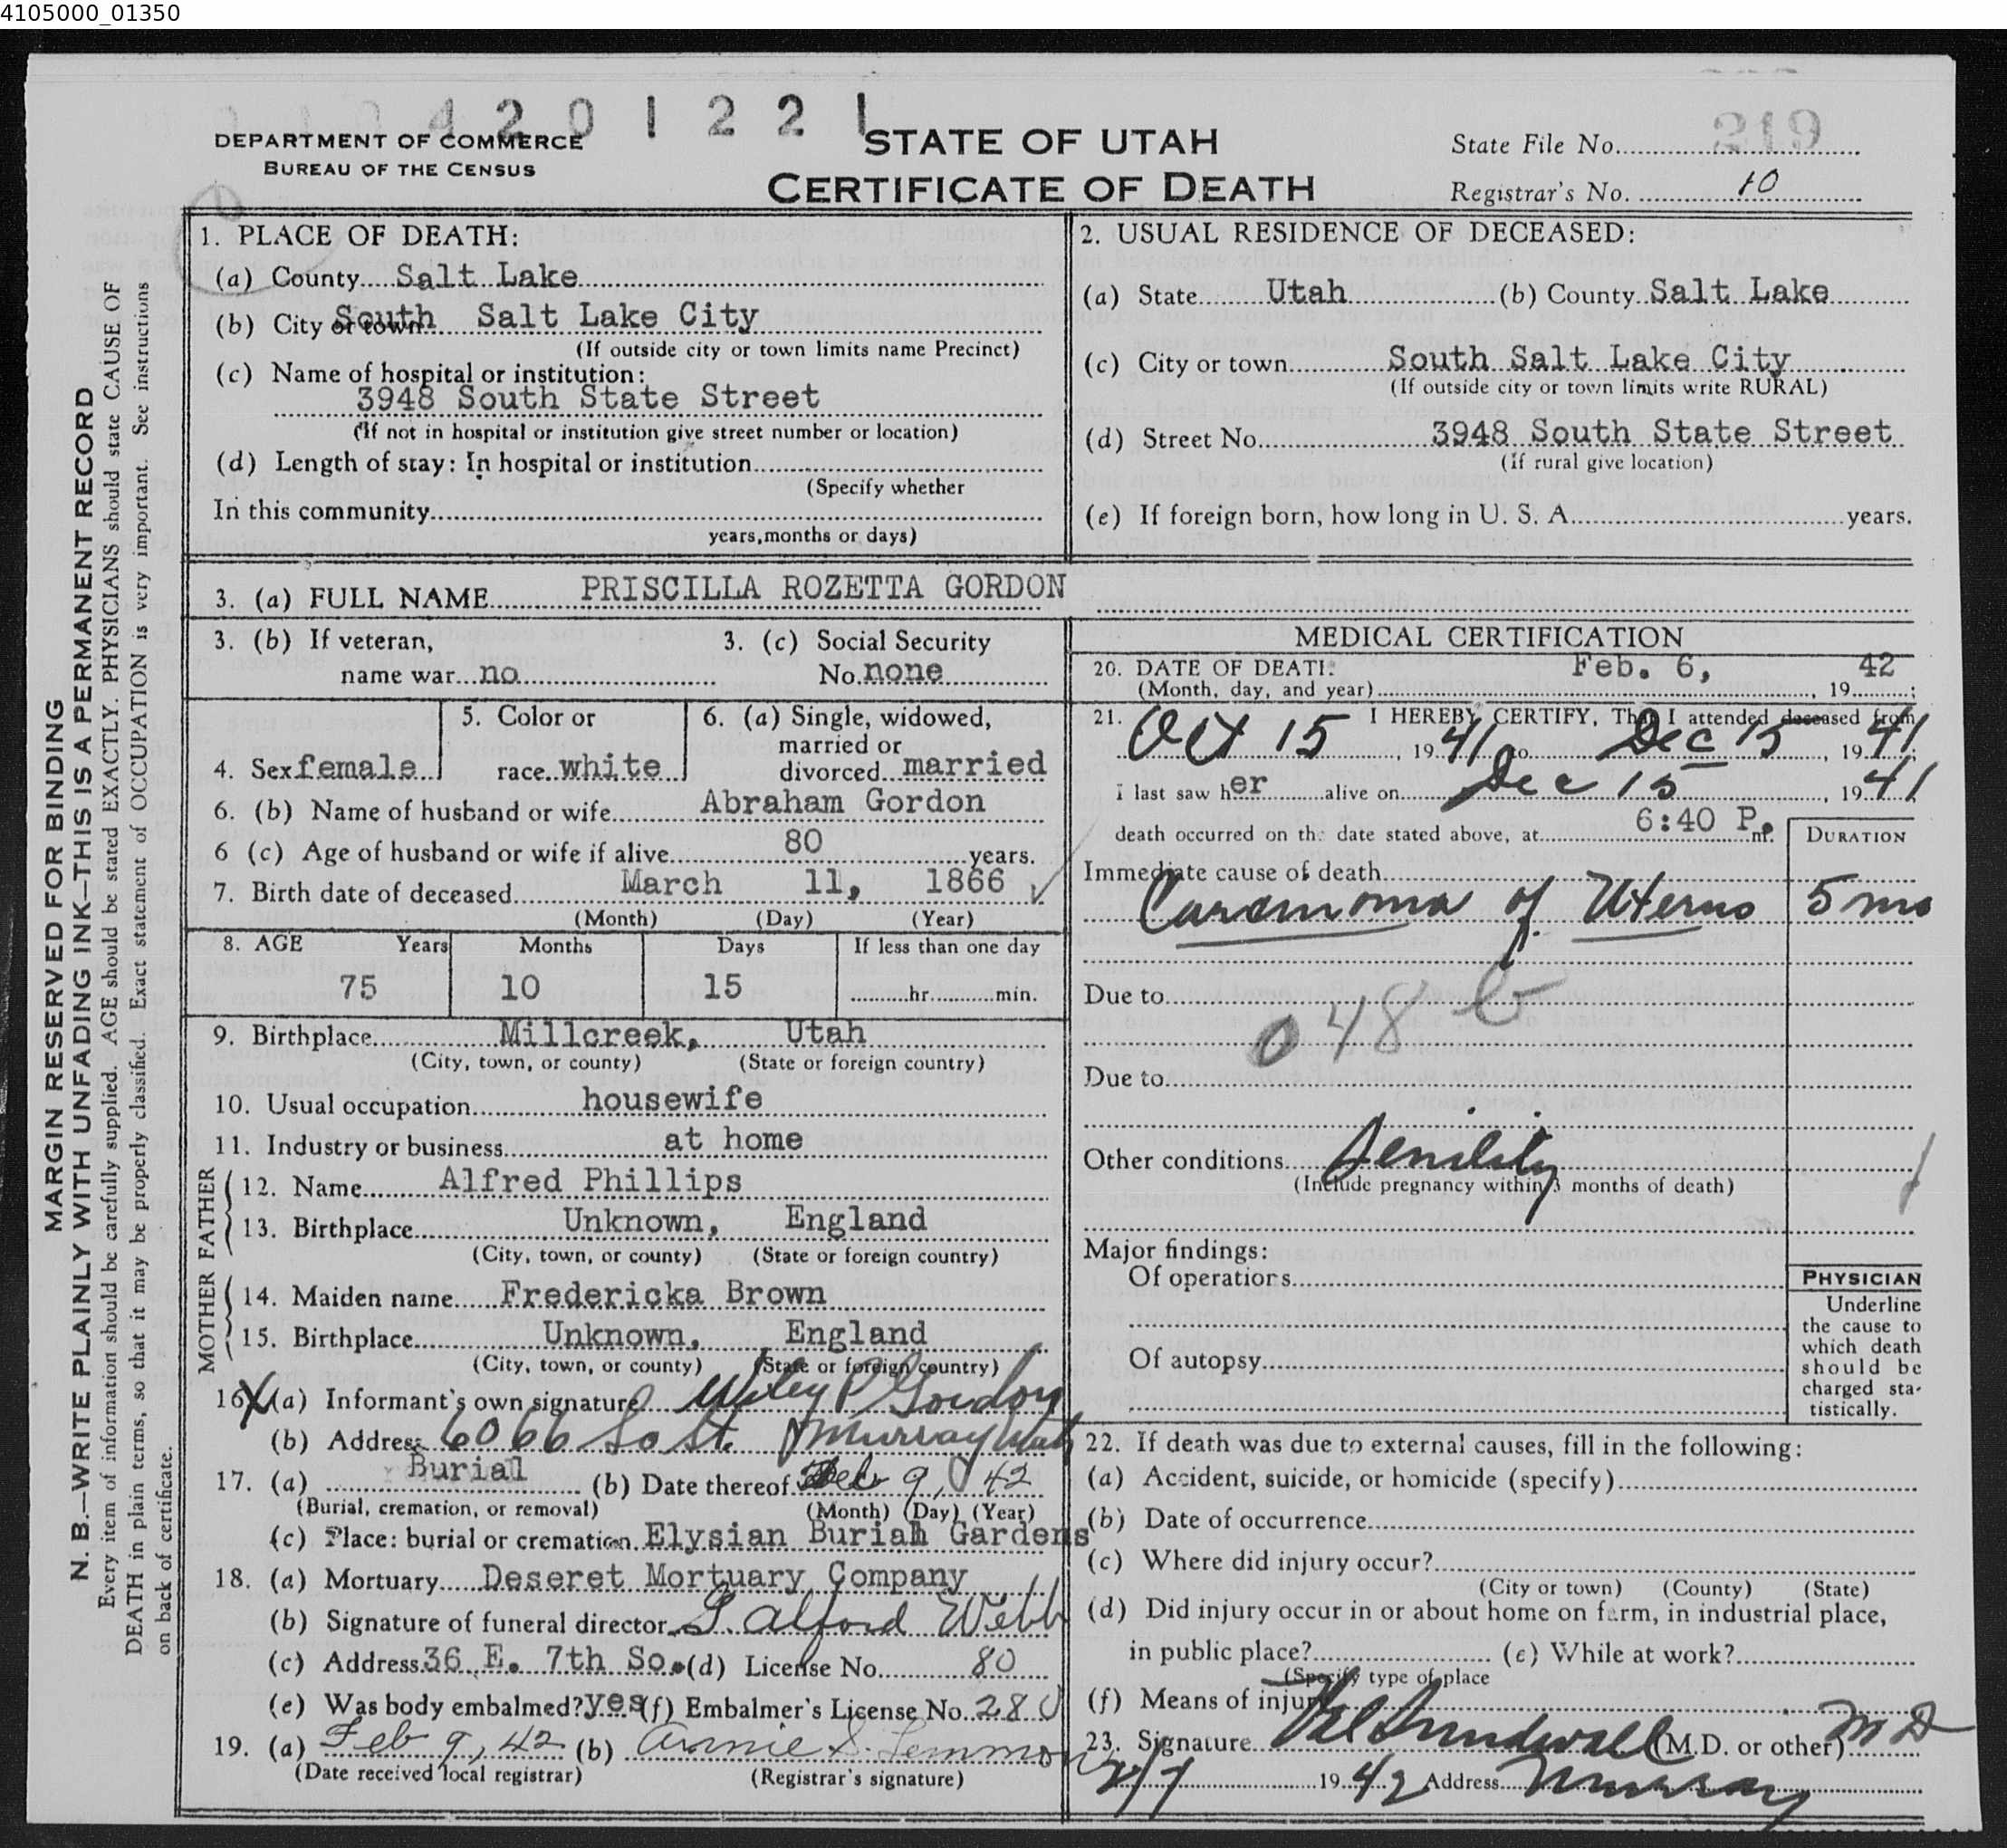 4105000_01350
420 1221
DEPARTMENT OF COMMERCE
BUREAU OF THE CENSUS
STATE OF UTAH
CERTIFICATE OF DEATH
State File No. 219
Registrar's No. 10
MARGIN RESERVED FOR BINDING
N. B.—WRITE PLAINLY WITH UNFADING INK—THIS IS A PERMANENT RECORD
Every item of information should be carefully supplied. AGE should be stated EXACTLY. PHYSICIANS should state CAUSE OF
DEATH in plain terms, so that it may be properly classified. Exact statement of OCCUPATION is very important. See instructions
on back of certificate.
1. PLACE OF DEATH:
(a) County Salt Lake
(b) City or town South Salt Lake City
(If outside city or town limits name Precinct)
(c) Name of hospital or institution:
3948 South State Street
(If not in hospital or institution give street number or location)
(d) Length of stay: In hospital or institution
(Specify whether
In this community
years, months or days)
2. USUAL RESIDENCE OF DECEASED:
(a) State Utah (b) County Salt Lake
(c) City or town South Salt Lake City
(If outside city or town limits write RURAL)
(d) Street No. 3948 South State Street
(If rural give location)
(e) If foreign born, how long in U. S. A. years.
3. (a) FULL NAME PRISCILLA ROZETTA GORDON
3. (b) If veteran,
name war no
3. (c) Social Security
No. none
4. Sex female
5. Color or
race white
6. (a) Single, widowed,
married or
divorced married
6. (b) Name of husband or wife Abraham Gordon
6 (c) Age of husband or wife if alive 80 years.
7. Birth date of deceased March 11, 1866
(Month) (Day) (Year)
8. AGE Years Months Days If less than one day
75 10 15 hr. min.
9. Birthplace Millcreek, Utah
(City, town, or county) (State or foreign country)
10. Usual occupation housewife
11. Industry or business at home
FATHER
12. Name Alfred Phillips
13. Birthplace Unknown, England
(City, town, or county) (State or foreign country)
MOTHER
14. Maiden name Fredericka Brown
15. Birthplace Unknown, England
(City, town, or county) (State or foreign country)
16 X (a) Informant's own signature Wiley P Gordon
(b) Address 6066 So St. Murray Utah
17. (a) Burial (b) Date thereof Feb 9, 42
(Burial, cremation, or removal) (Month) (Day) (Year)
(c) Place: burial or cremation Elysian Burial Gardens
18. (a) Mortuary Deseret Mortuary Company
(b) Signature of funeral director Alford Webb
(c) Address 36 E. 7th So. (d) License No. 80
(e) Was body embalmed? yes (f) Embalmer's License No. 280
19. (a) Feb 9, 42 (b) Annie S. Lemmon
(Date received local registrar) (Registrar's signature)
MEDICAL CERTIFICATION
20. DATE OF DEATH: Feb. 6, 42
(Month, day, and year) , 19 ;
21. I HEREBY CERTIFY, That I attended deceased from
Oct 15, 1941 to Dec 15, 1941;
I last saw her alive on Dec 15, 1941
death occurred on the date stated above, at 6:40 P. m.
DURATION
Immediate cause of death
Carcinoma of Uterus 5 mo
Due to
048 b
Due to
Other conditions Senility
(Include pregnancy within 3 months of death)
Major findings:
Of operations
Of autopsy
PHYSICIAN
Underline
the cause to
which death
should be
charged sta-
tistically.
22. If death was due to external causes, fill in the following:
(a) Accident, suicide, or homicide (specify)
(b) Date of occurrence
(c) Where did injury occur?
(City or town) (County) (State)
(d) Did injury occur in or about home on farm, in industrial place,
in public place? (e) While at work?
(Specify type of place
(f) Means of injury
23. Signature Sundwall (M.D. or other) M D
2/7 1942 Address Murray